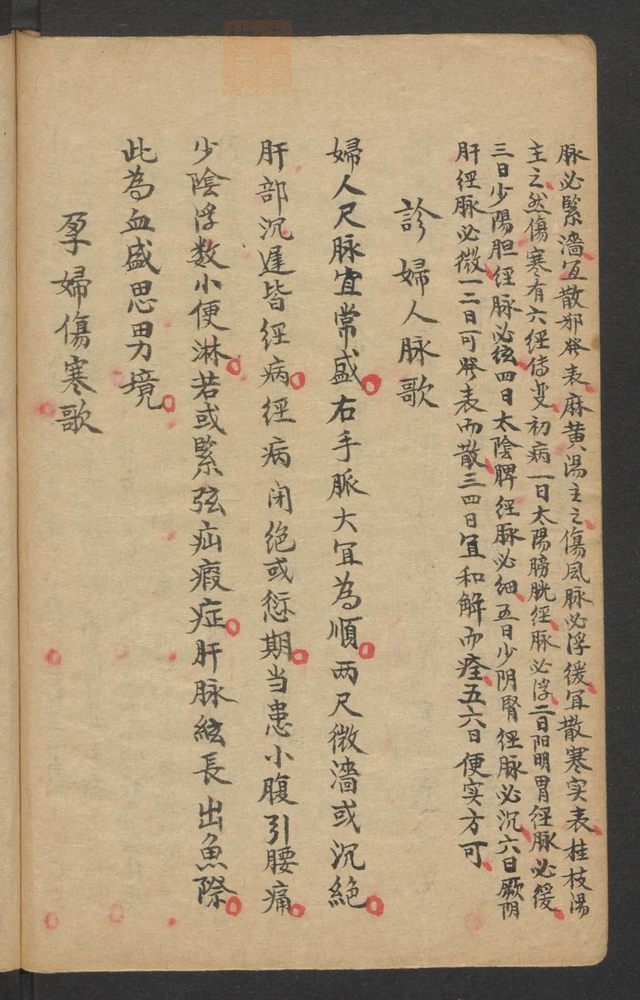 脉必緊濇宜散邪發表麻黄湯主之傷風脉必浮緩宜散寒实表桂枝湯
主之然傷寒有六經傳变初病一日太陽膀胱經脉必浮二日阳明胃經脉必緩
三日少陽胆經脉必弦四日太陰脾經脉必細五日少阴腎經脉必沉六日厥阴
肝經脉必微一二日可發表而散三四日宜和解而痊五六日便实方可
診婦人脉歌
婦人尺脉宜常盛右手脈大宜為順两尺微濇或沉絶
肝部沉遲皆經病經病闭绝或愆期当患小腹引腰痛
少陰浮数小便淋若或緊弦疝瘕症肝脉絃長出魚際
此為血盛思男境
孕婦傷寒歌